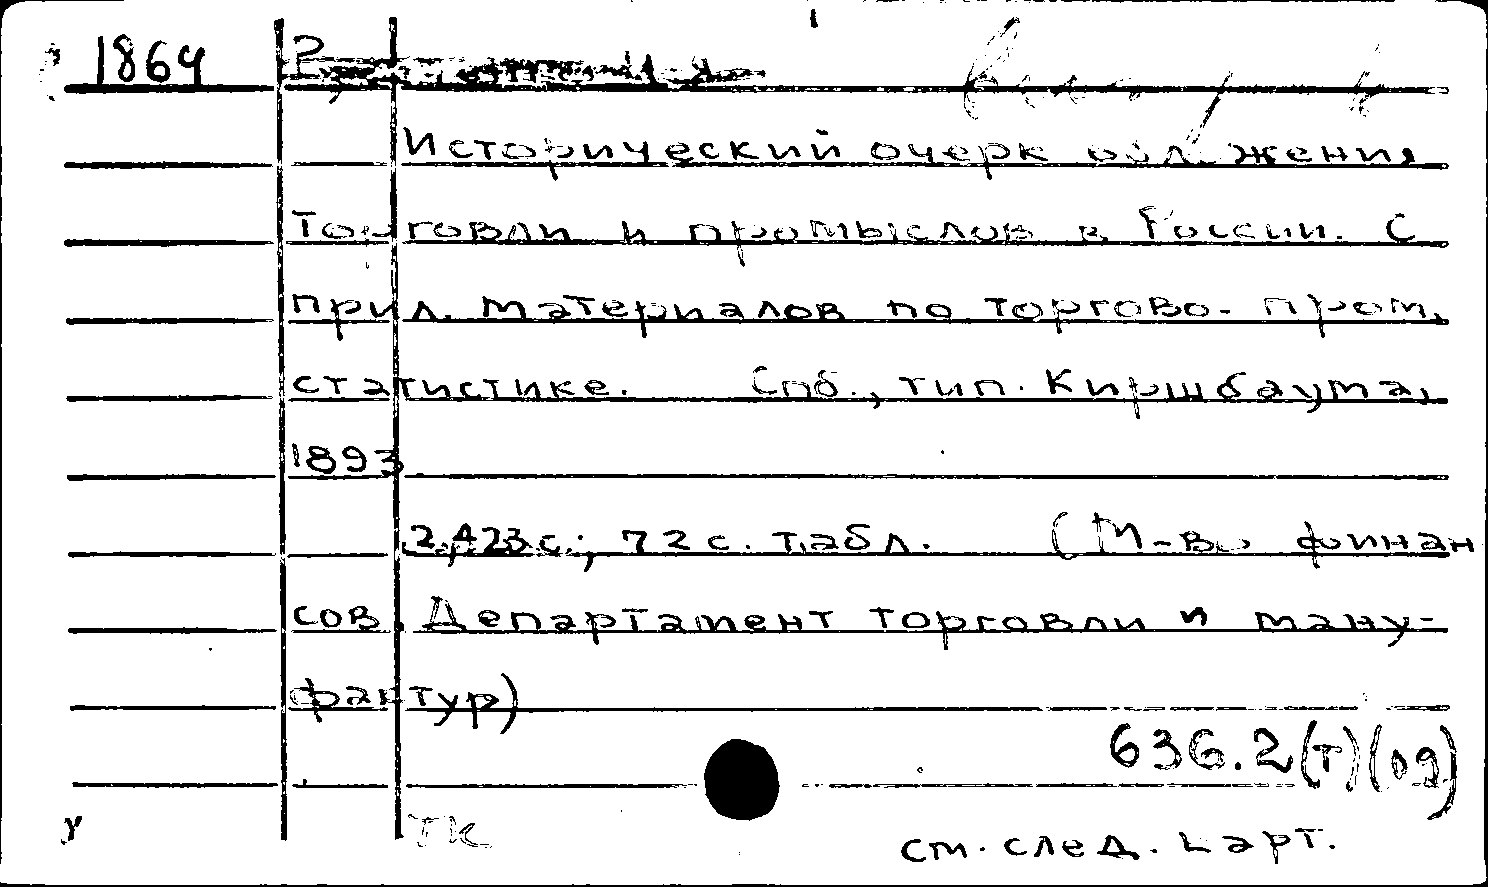 1864
Исторический очерк обложения
торговли и промыслов в России. С
прил. материалов по торгово-пром.
статистике. Спб., тип. Киршбаума,
1893
2,423 с.; 72 с. табл. (М-во финан
сов. Департамент торговли и ману-
фактур)
636.2(т)(09)
У ТК
см. след. карт.